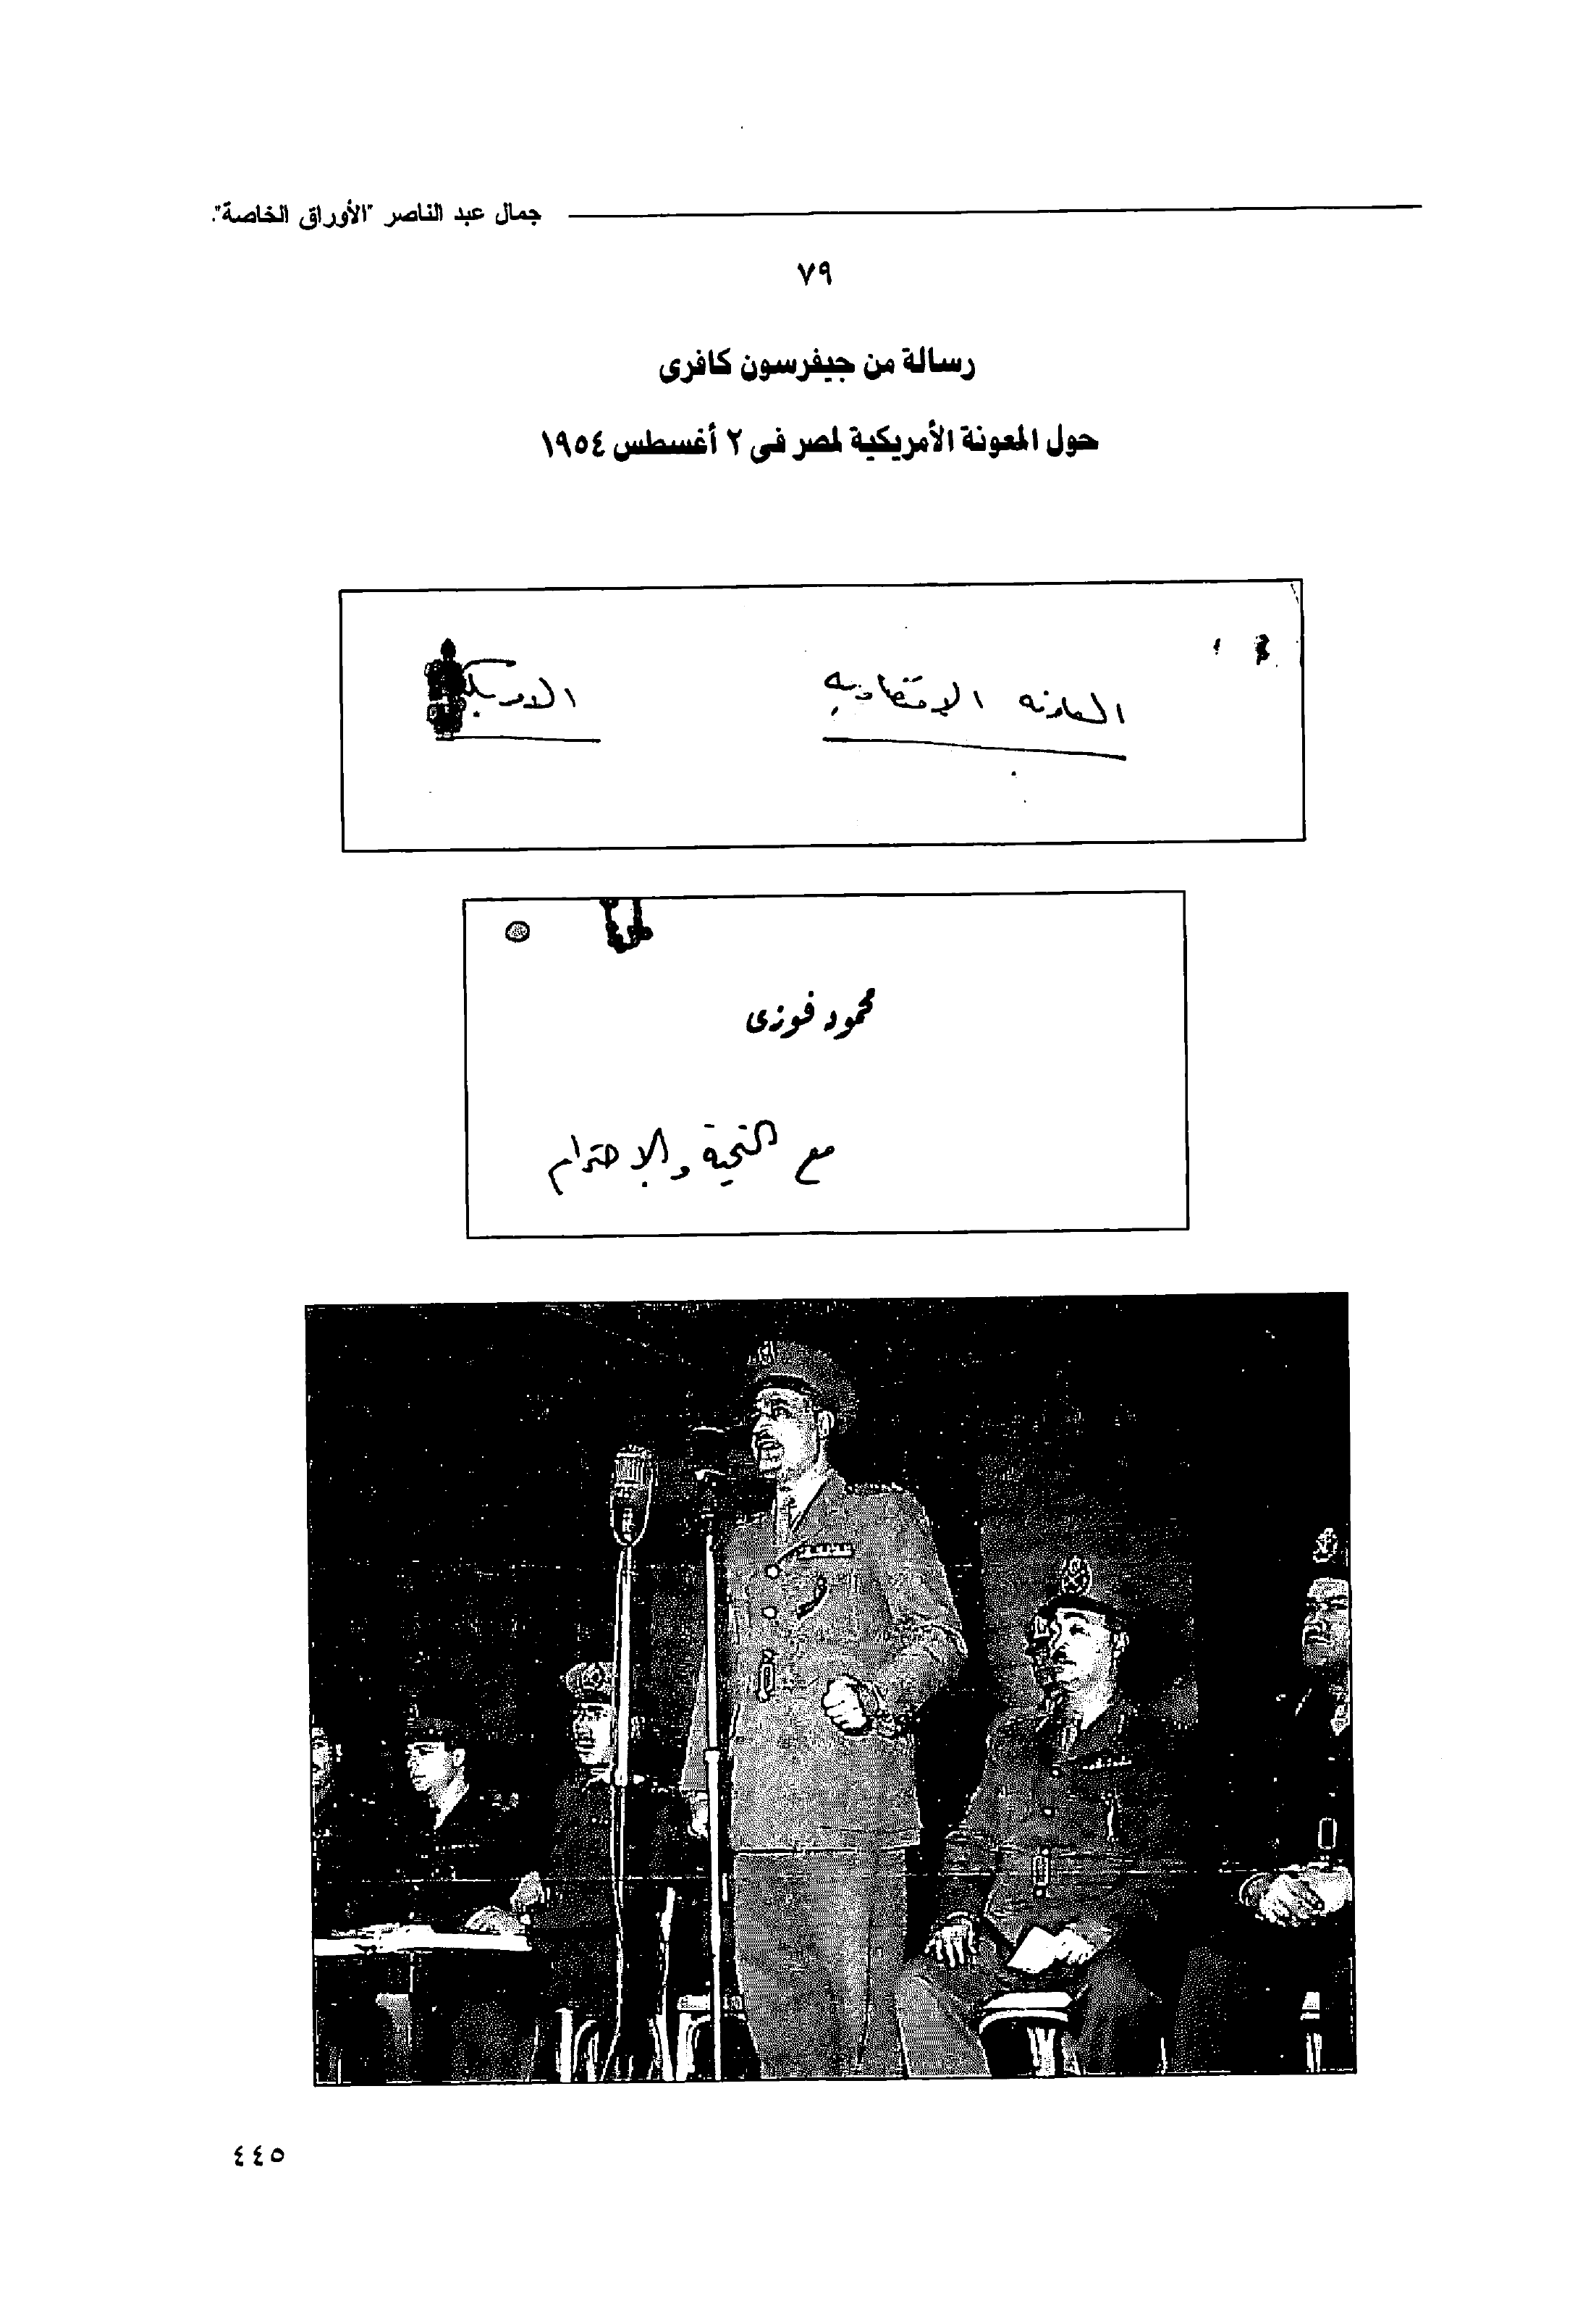 جمال عبد الناصر "الأوراق الخاصة".
٧٩
رسالة من جيفرسون كافرى
حول المعونة الأمريكية لمصر فى ٢ أغسطس ١٩٥٤
المعونه الاقتصاديه
محمود فوزى
مع التحية والاحترام
٤٤٥